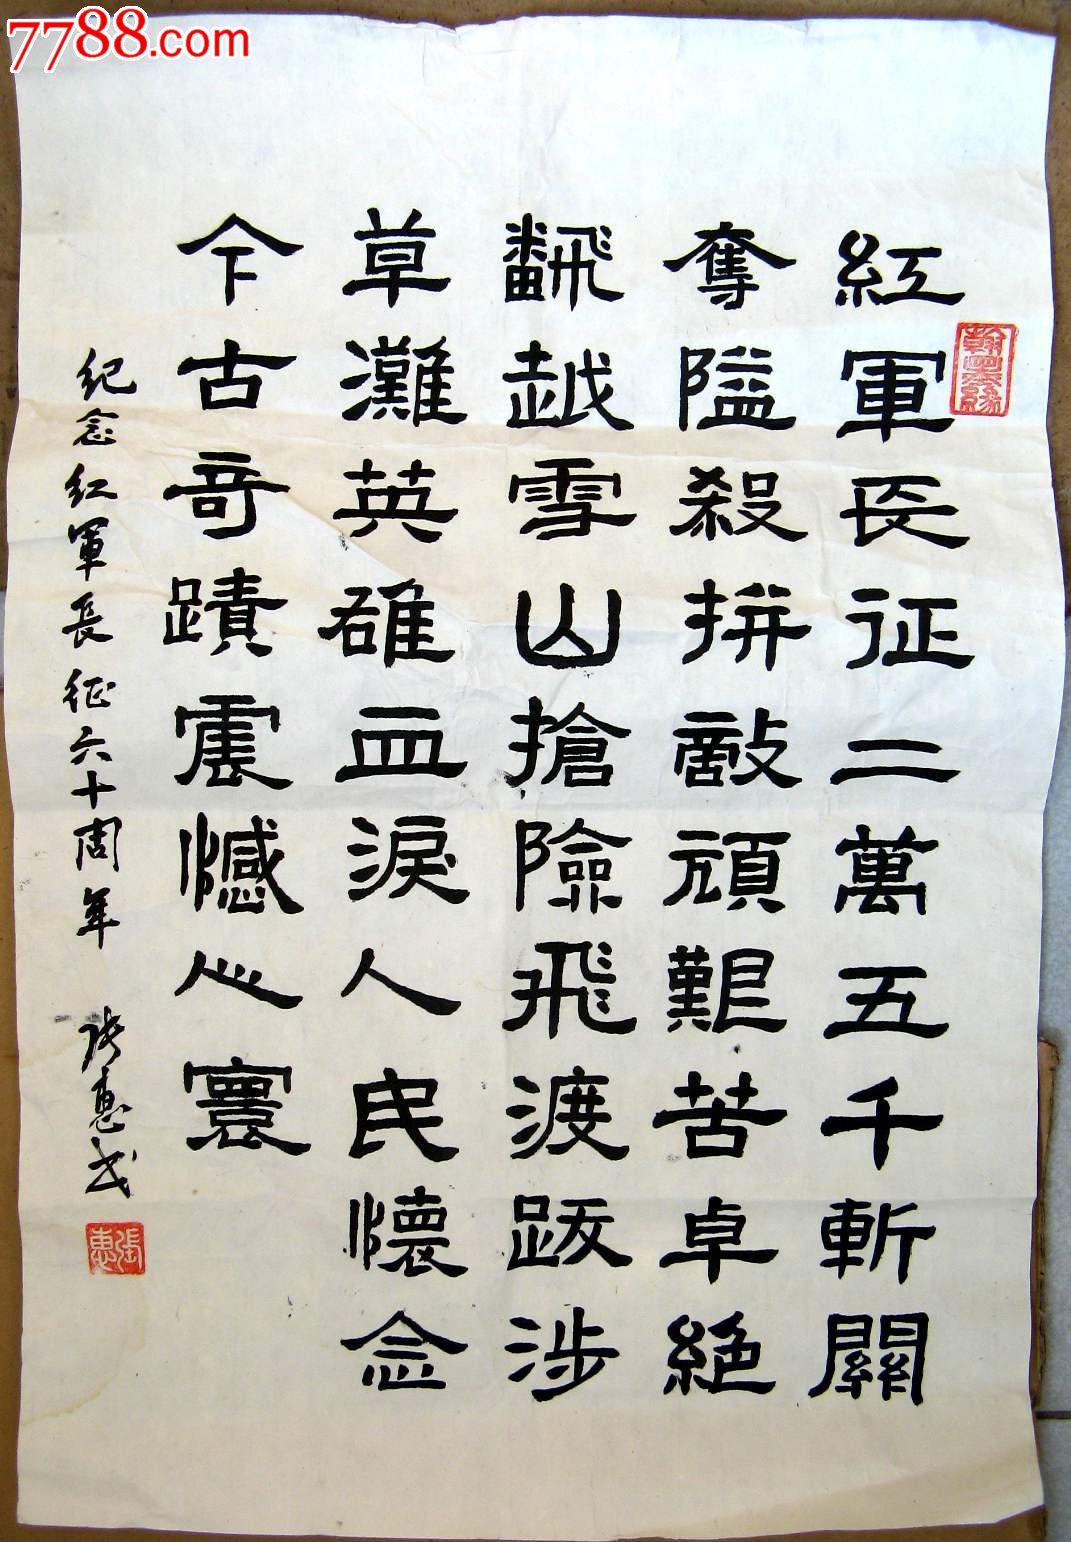 7788.com
紅軍長征二萬五千斬關
奪隘殺拼敵頑艱苦卓絕
飜越雪山搶險飛渡跋涉
草灘英雄血淚人民懷念
今古奇蹟震憾心寰
纪念红軍長征六十周年 张惠书
張惠